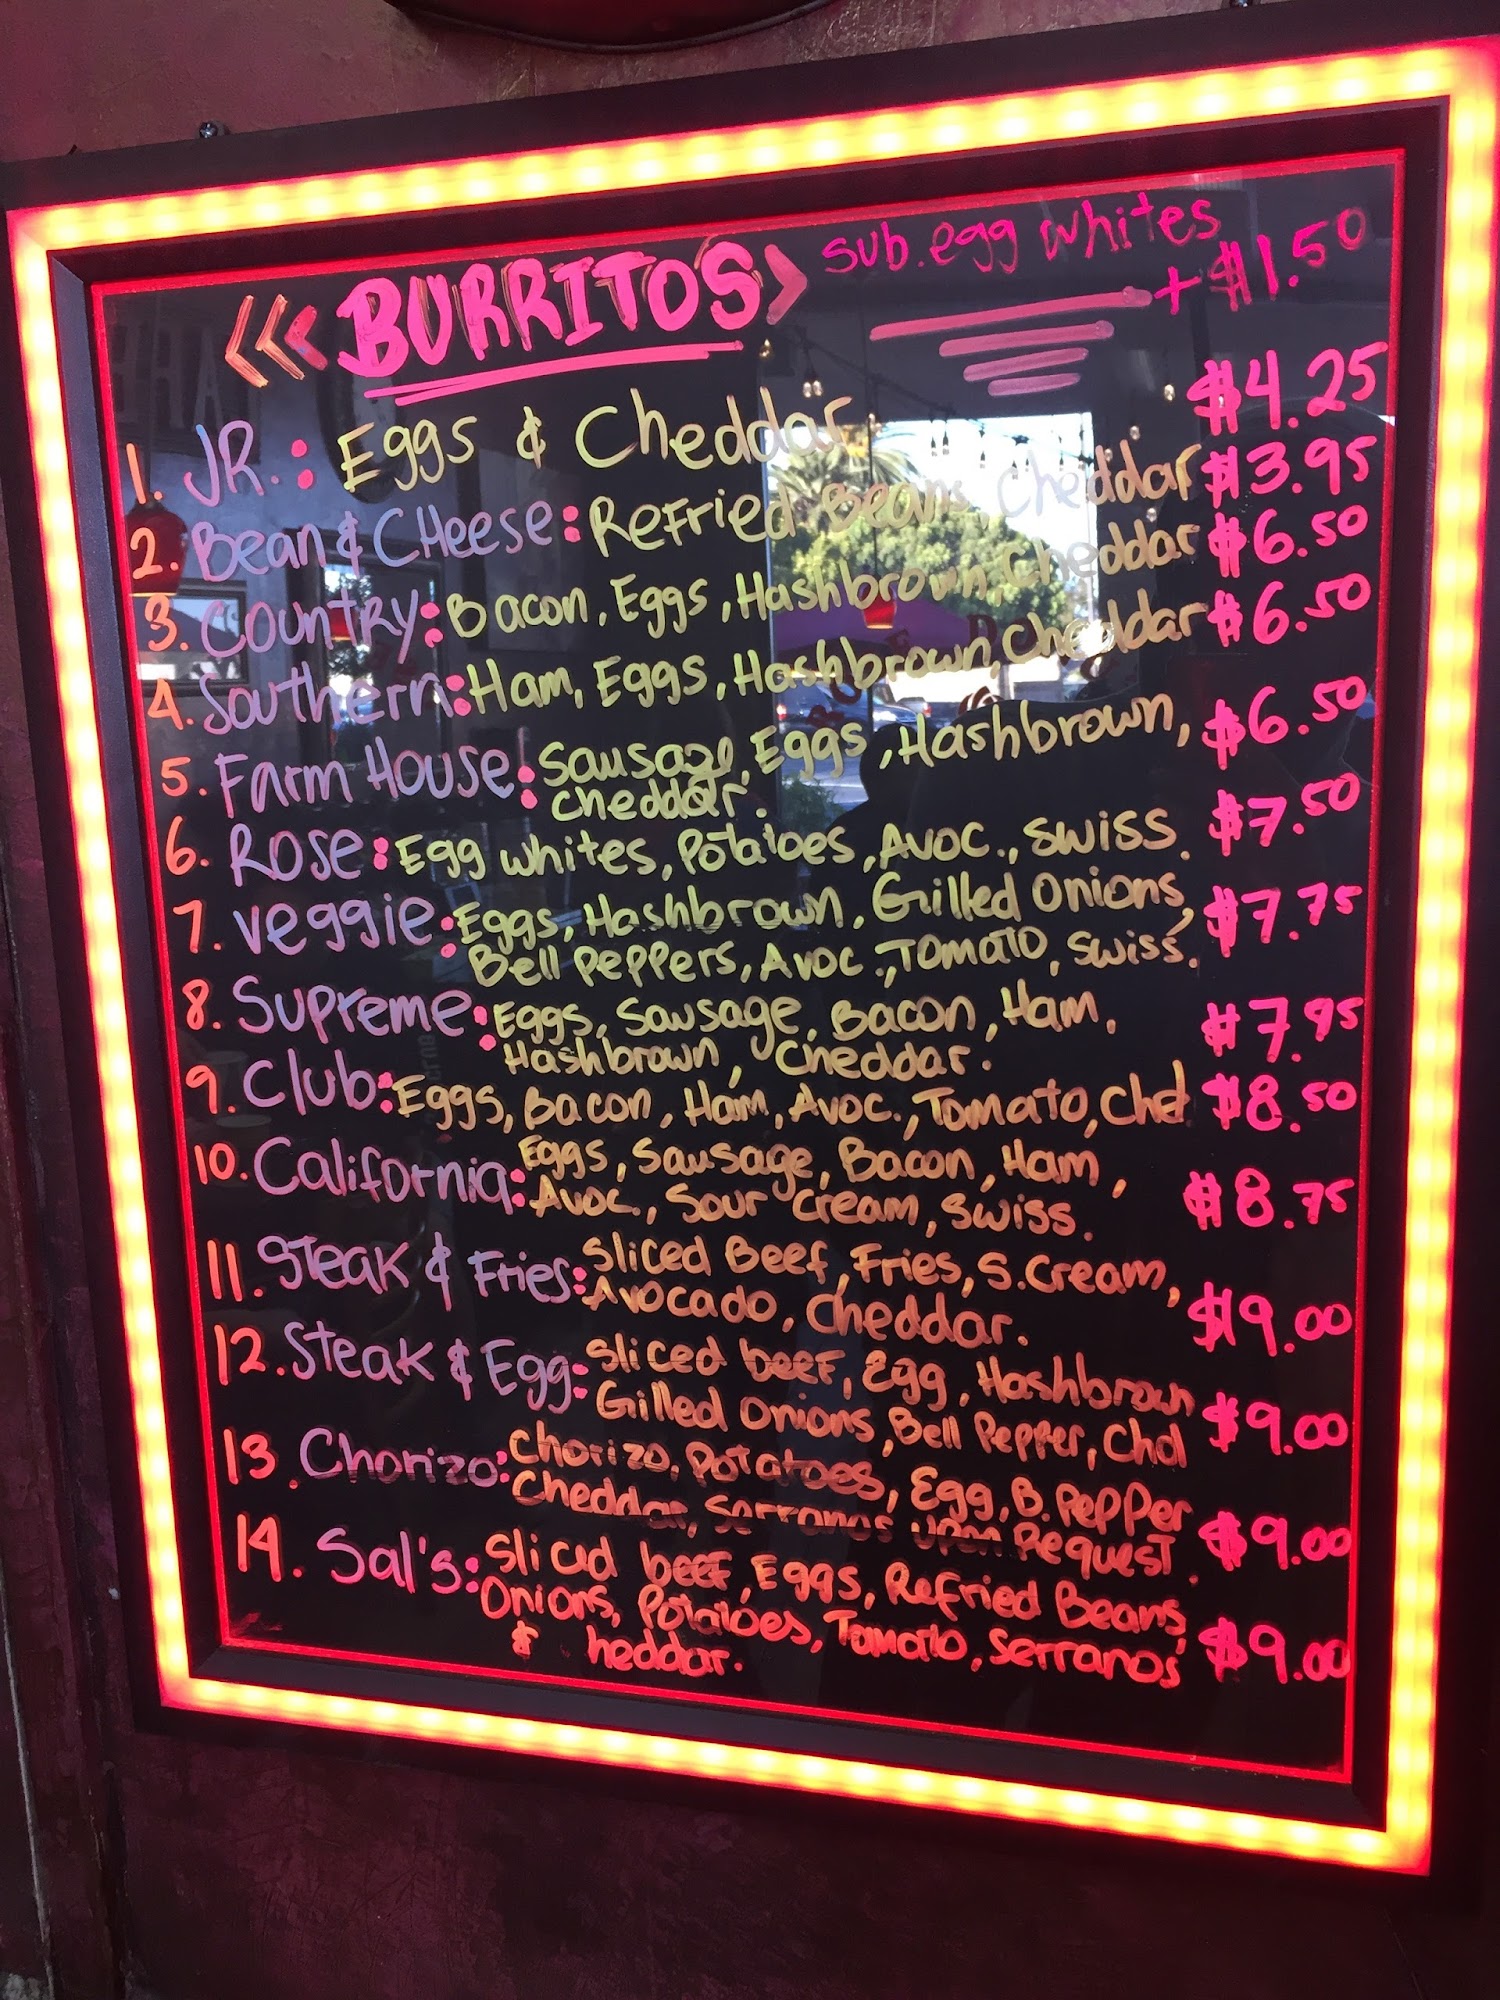 <<< BURRITOS > sub. egg whites
+ $1.50
1. JR.: Eggs & Cheddar $4.25
2. Bean & CHeese: Refried Beans, Cheddar $3.95
3. Country: Bacon, Eggs, Hashbrown, Cheddar $6.50
4. Southern: Ham, Eggs, Hashbrown, Cheddar $6.50
5. Farm House: Sausage, Eggs, Hashbrown, $6.50
Cheddar.
6. Rose: Egg whites, Potatoes, Avoc., Swiss. $7.50
7. Veggie: Eggs, Hashbrown, Grilled Onions, $7.75
Bell Peppers, Avoc., Tomato, Swiss.
8. Supreme: Eggs, Sausage, Bacon, Ham, $7.95
Hashbrown, Cheddar.
9. Club: Eggs, Bacon, Ham, Avoc., Tomato, Chd $8.50
10. California: Eggs, Sausage, Bacon, Ham, $8.75
Avoc., Sour Cream, Swiss.
11. Steak & Fries: Sliced Beef, Fries, S. Cream,
Avocado, Cheddar. $9.00
12. Steak & Egg: Sliced beef, Egg, Hashbrown
Grilled Onions, Bell Pepper, Chd $9.00
13. Chorizo: Chorizo, Potatoes, Egg, B. Pepper
Cheddar, Serranos Upon Request. $9.00
14. Sal's: Sliced beef, Eggs, Refried Beans,
Onions, Potatoes, Tomato, Serranos $9.00
& heddar.